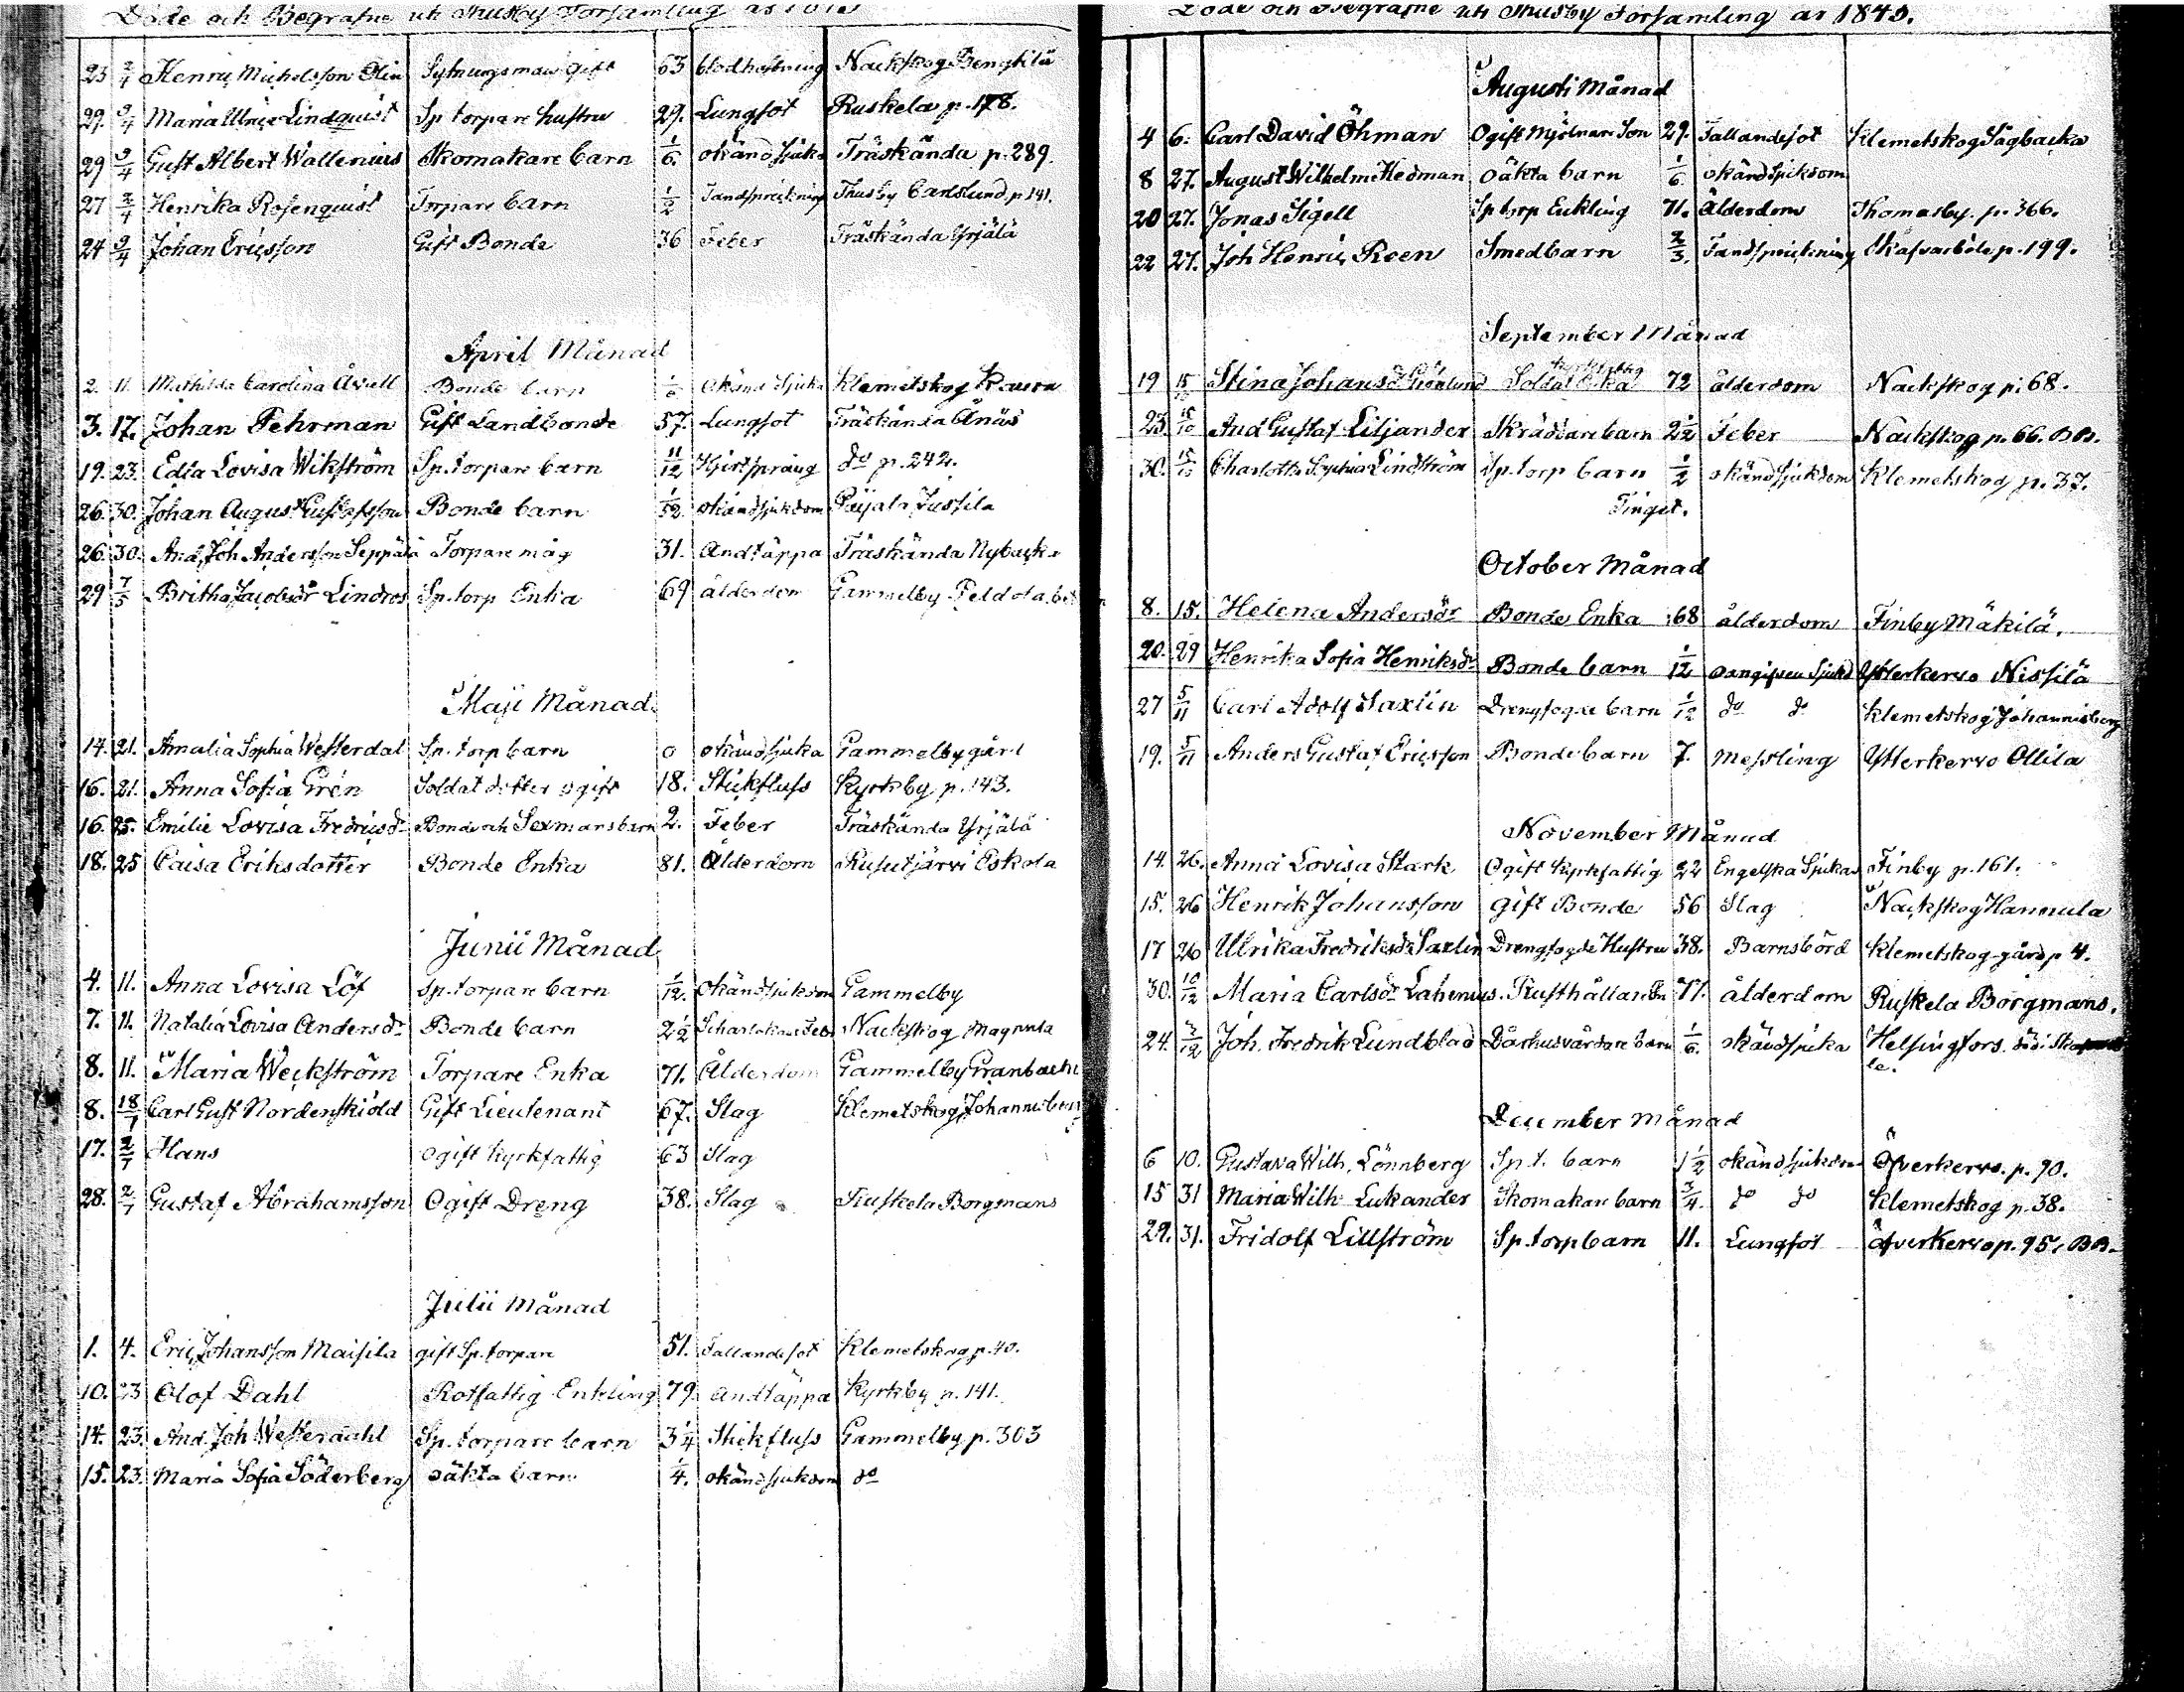 Döde och Begrafne uti Thusby Församling år
23 2/4 Henric Michelsson Olin Sytningsman gift 63 blodhostning Nackskog Bengtilä
29. 9/4 Maria Ulrica Lindquist Sp torpare hustru 29. Lungsot Ruskela p. 178.
29 9/4 Gust Albert Wallenius Skomakare barn 1/6. okänd sjukd Träskända p. 289.
27 2/4 Henrika Rosenquist Torpare barn 1/2 Tandsprickning Thusby Carlslund p. 141.
24 9/4 Johan Ericsson Gift Bonde 36 Feber Träskända Yrjälä
April Månad
2. 11. Mathilda Carolina Åvall Bonde barn okänd sjuka Klemetskog
3. 17. Johan Fehrman Gift Landbonde 57. Lungsot Träskända Ånäs
19. 23. Edla Lovisa Wikström Sp. torpare barn 11/12 Hjertsprång do p. 242.
26 30. Johan August Gustafsson Bonde barn 1/52 okändsjukdom Paijala Jussila
26. 30. And. Joh Andersson Seppälä Torpare måg 31. Andtäppa Träskända Nybacka
29 7/5 Britha Jacobsdr Lindros Sp. torp Enka 69 ålderdom Gammelby
Maji Månad.
14. 21. Amalia Sophia Westerdal Sp. torp barn 0 okänd sjuka Gammelby gård
16. 21. Anna Sofia Grén Soldat dotter ogift 18. Stickfluss Kyrkby p. 143.
16. 25. Emilie Lovisa Fredricsdr Bonde och Sexmans barn 2. Feber Träskända Yrjälä
18. 25 Caisa Eriksdotter Bonde Enka 81. Ålderdom Rusutjärvi Eskola
Junii Månad
4. 11. Anna Lovisa Löf Sp. torpare barn 1/12. Okändsjukdom Gammelby
7. 11. Natalia Lovisa Andersdr Bonde barn 2 1/2 Scharlakans Feb. Nackskog Magnula
8. 11. Maria Weckström Torpare Enka 71. Ålderdom Gammelby Granbacka
8. 18/7 Carl Gust Nordenskiöld Gift Lieutenant 67. Slag Klemetskog Johannisberg
17. 2/7 Hans ogift kyrkfattig 63 Slag
28. 2/7 Gustaf Abrahamsson Ogift Dreng 38. Slag Ruskela Borgmans
Julii Månad
1. 4. Eric Johansson Maisila gift Sp. torpare 51. Fallandesot Klemetskog p. 40.
10. 23 Olof Dahl Rotfattig Enkling 79. andtäppa Kyrkby p. 141.
14. 23. And. Joh Westerdahl Sp. torpare barn 3 1/4 Stickfluss Gammelby p. 303
15. 23. Maria Sofia Söderberg oäkta barn 1/4. okändsjukdom do
Döde och Begrafne uti Thusby Församling år 1843.
Augusti Månad
4 6. Carl David Öhman Ogift Mjölnare Son 29. Fallandesot Klemetskog Sågbacka
8 27. August Wilhelm Hedman oäkta barn 1/6 okänd sjukdom
20 27. Jonas Sigell Sp torp Enkling 71. Ålderdom Thomasby. p. 366.
22 27. Joh Henric Reen Smedbarn 2/3. Tandsprickning Skafvaböle p. 199.
September Månad
19 15/10 Stina Johansdr Grönlund Soldat Enka 72 ålderdom Nackskog p. 68.
23. 15/10 And Gustaf Liljander Skräddare barn 2 1/2 Feber Nackskog p. 66. BB.
30. 15/10 Charlotta Sophia Lindström Sp. torp barn 1/2 okänd sjukdom Klemetskog p. 37.
Tinget.
October Månad
8. 15. Helena Andersdr Bonde Enka 68 ålderdom Finby Mäkilä.
20. 29 Henrika Sofia Henriksdr Bonde barn 1/12 oangifven Sjukd Ytterkervo Nissilä
27 5/11 Carl Adolf Saxlin Drengfogde barn 1/12 do do Klemetskog Johannisberg
19. 5/11 Anders Gustaf Ericsson Bonde barn 7. Messling Ytterkervo Ollila
November Månad
14 26. Anna Lovisa Stark Ogift kyrkfattig 22 Engelska Sjukan Finby p. 161.
15. 26 Henrik Johansson gift Bonde 56 Slag Nackskog Hannula
17 26 Ulrika Fredriksdr Saxlin Drengfogde Hustru 38. Barnsbörd Klemetskog gård p 4.
30. 10/12 Maria Carlsdr Lahenius. Rusthållar En 77. ålderdom Ruskela Borgmans.
24. 2/12 Joh. Fredrik Lundblad Dårhusvårdare barn 1/6. okänd sjuka Helsingfors. död i
le.
December Månad
6 10. Gustava Wilh. Lönnberg Sp. t. barn 1 1/2 okänd sjukdom Öfverkervo. p. 90.
15 31 Maria Wilh Lukander Skomakare barn 3/4. do do Klemetskog p. 38.
29. 31. Fridolf Lillström Sp. torp barn 11. Lungsot Öfverkervo p. 95. BB.